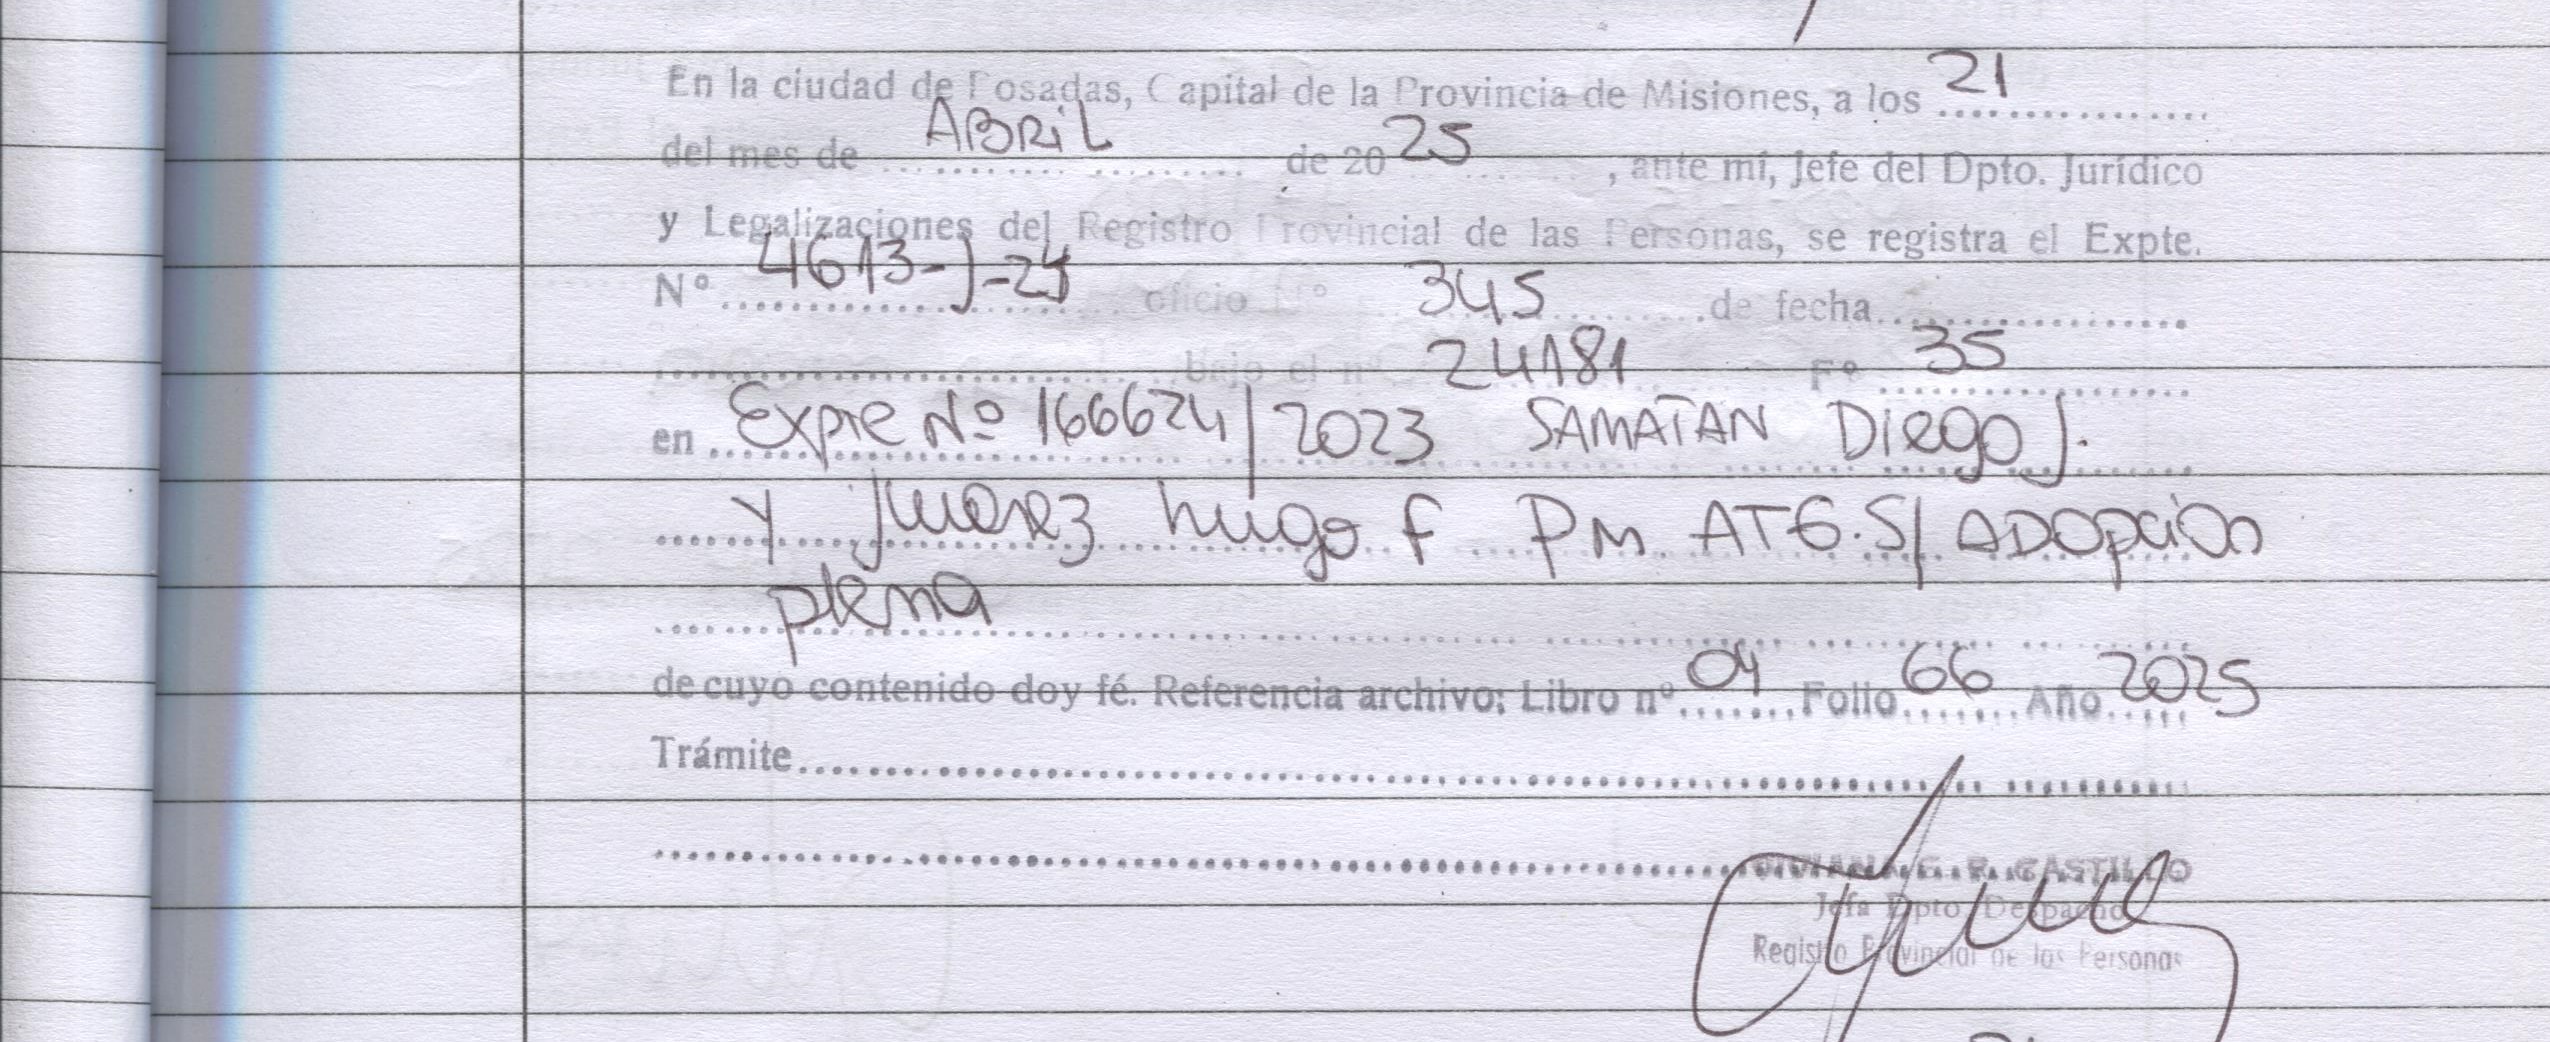 En la ciudad de Posadas, Capital de la Provincia de Misiones, a los 21
del mes de ABRIL de 20 25, ante mí, Jefe del Dpto. Jurídico
y Legalizaciones del Registro Provincial de las Personas, se registra el Expte.
Nº 4613-J-24 oficio Nº 345 de fecha
bajo el nº 24181 Fº 35
en Expte Nº 166624/2023 SAMATAN Diego J.
y Juarez hugo f PM ATG. S/ ADOpcion
plena
de cuyo contenido doy fé. Referencia archivo: Libro nº 04 Folio 66 Año 2025
Trámite
G. R. CASTILLO
Jefa Dpto. Despacho
Registro Provincial de las Personas